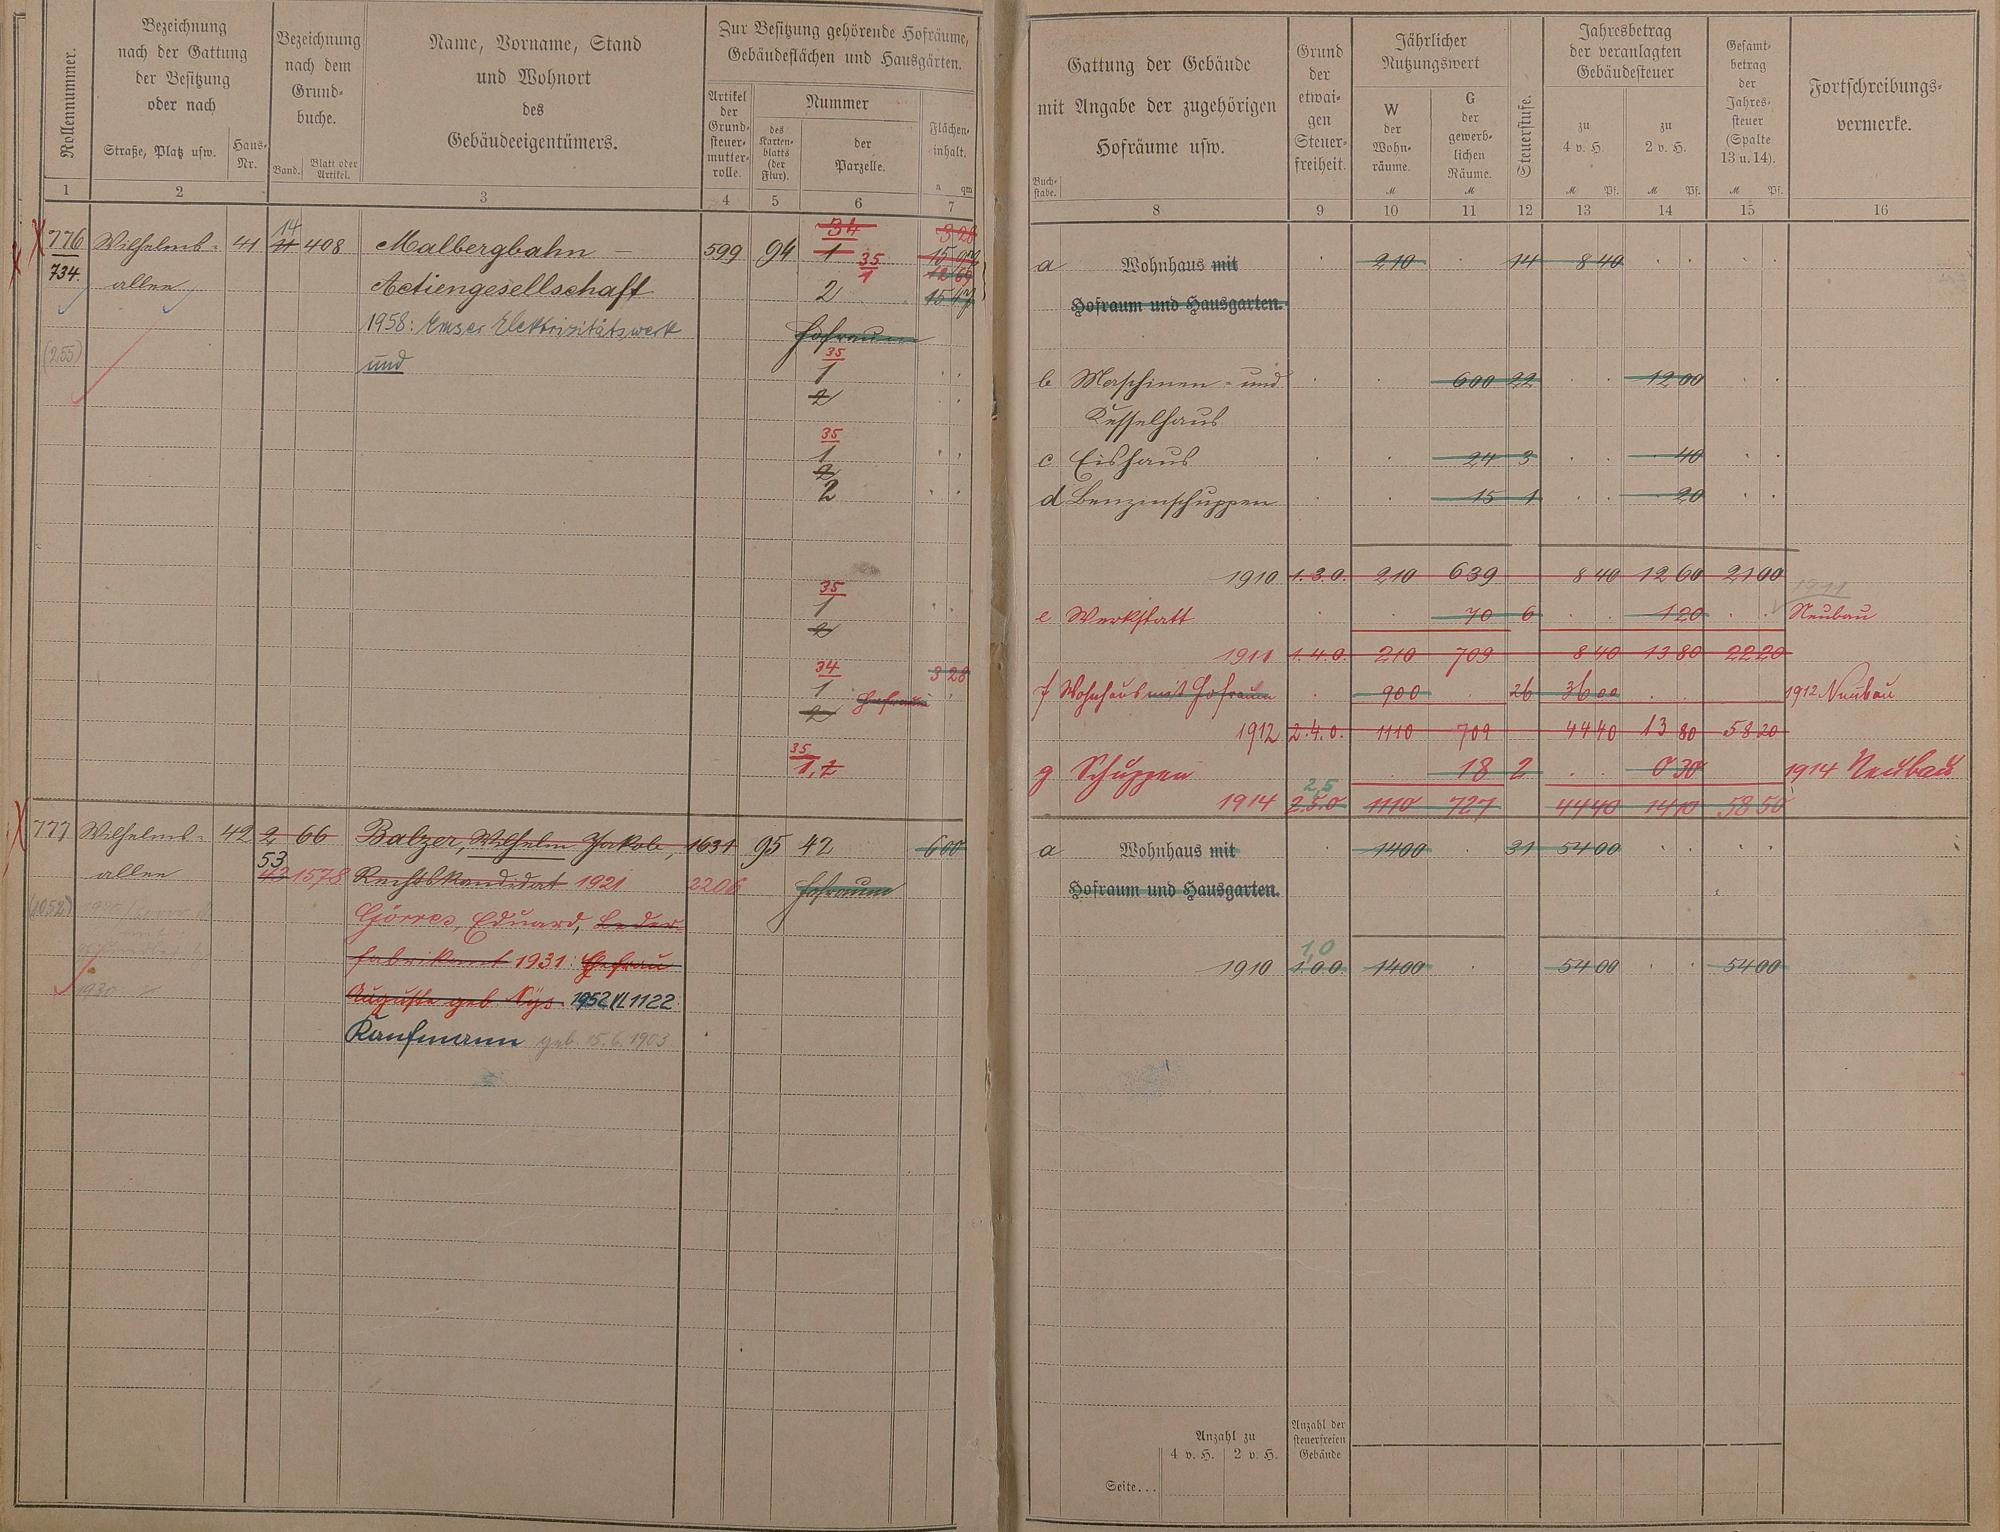 Rollennummer.
Bezeichnung
nach der Gattung
der Besitzung
oder nach
Straße, Platz usw.
Haus-
Nr.
Bezeichnung
nach dem
Grund-
buche.
Band.
Blatt oder
Artikel.
Name, Vorname, Stand
und Wohnort
des
Gebäudeeigentümers.
Zur Besitzung gehörende Hofräume,
Gebäudeflächen und Hausgärten.
Artikel
der
Grund-
steuer-
mutter-
rolle.
Nummer
des
Karten-
blatts
(der
Flur).
der
Parzelle.
Flächen-
inhalt.
a qm
1 2 3 4 5 6 7
776 Wilhelms- 41 14 408 Malbergbahn 599 94 34 1 35/1 3 28
734. allee Actiengesellschaft 2 15 47
1958: Emser Elektrizitätswerk Hofraum
(255) und 35
1
2
35
1
2
2
35
1
2
34 3 28
1 Hofraum
2
35
1, 2
777 Wilhelms- 42 2 66 Balzer, Wilhelm Jakob, 1631 95 42 6 00
allee 53 43 1578 Rechtskandidat 1921 2206 Hofraum
(1052) Görres, Eduard, Leder-
fabrikant 1931: Ehefrau
Auguste geb. Nys 1952 VL 1122
1930 Kaufmann geb. 15.6.1903
Gattung der Gebäude
mit Angabe der zugehörigen
Hofräume usw.
Buch-
stabe.
Grund
der
etwai-
gen
Steuer-
freiheit.
Jährlicher
Nutzungswert
W
der
Wohn-
räume.
M
G
der
gewerb-
lichen
Räume.
M
Steuerstufe.
Jahresbetrag
der veranlagten
Gebäudesteuer
zu
4 v. H.
M Pf.
zu
2 v. H.
M Pf.
Gesamt-
betrag
der
Jahres-
steuer
(Spalte
13 u. 14).
M Pf.
Fortschreibungs-
vermerke.
8 9 10 11 12 13 14 15 16
a Wohnhaus mit 210 14 8 40
Hofraum und Hausgarten.
b Maschinen- und 600 22 12 00
Kesselhaus
c Eishaus 24 3 40
d Benzinschuppen 15 1 20
1910 1.3.0. 210 639 8 40 12 60 21 00
1911
e Werkstatt 70 6 1 20 Neubau
1911 1.4.0. 210 709 8 40 13 80 22 20
f Wohnhaus mit Hofraum 900 26 36 00 1912 Neubau
1912 2.4.0. 1110 709 44 40 13 80 58 20
g Schuppen 18 2 0 30 1914 Neubau
2,5
1914 2.5.0 1110 727 44 40 14 10 58 50
a Wohnhaus mit 1400 31 54 00
Hofraum und Hausgarten.
1,0
1910 1.0.0 1400 54 00 54 00
Anzahl zu
4 v. H. 2 v. H.
Anzahl der
steuerfreien
Gebäude
Seite...